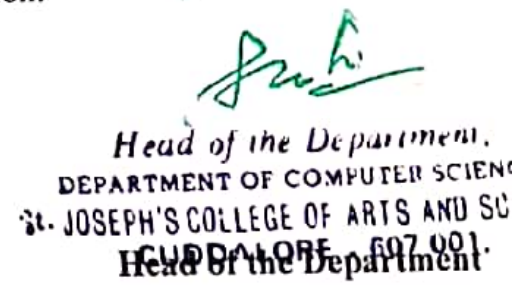 Head of the Department,
DEPARTMENT OF COMPUTER SCIENC
St. JOSEPH'S COLLEGE OF ARTS AND SC
CUDDALORE - 607 001.
Head of the Department